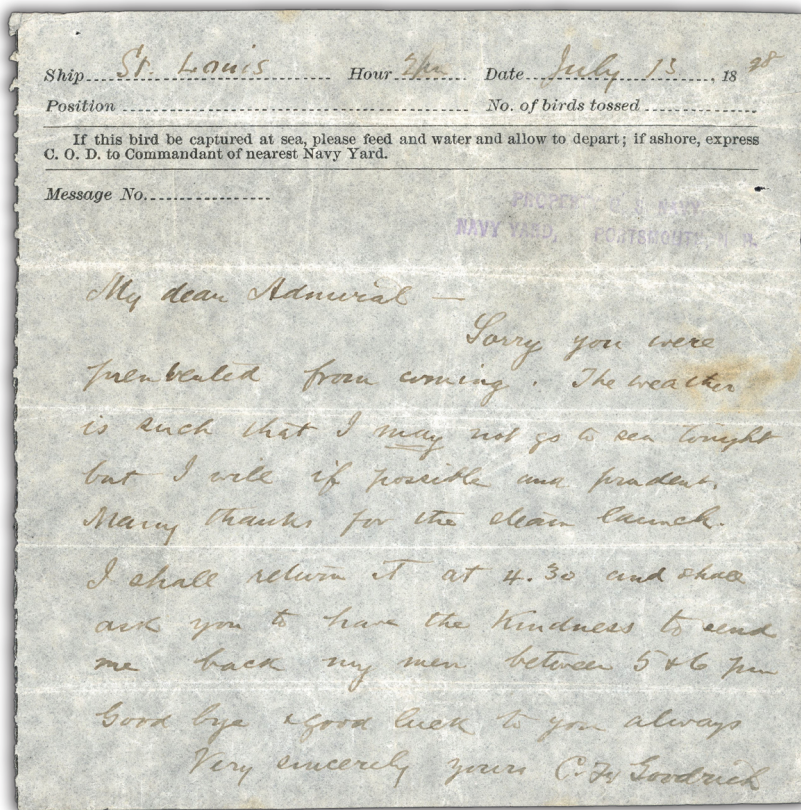 Ship St. Louis Hour 2 pm Date July 13, 1898
Position No. of birds tossed
If this bird be captured at sea, please feed and water and allow to depart; if ashore, express
C. O. D. to Commandant of nearest Navy Yard.
Message No.
NAVY
NAVY YARD, PORTSMOUTH, N. H.
My dear Admiral —
Sorry you were
prevented from coming. The weather
is such that I may not go to sea tonight
but I will if possible and prudent.
Many thanks for the steam launch.
I shall return it at 4.30 and shall
ask you to have the kindness to send
me back my men between 5 & 6 pm
Good bye & good luck to you always
Very sincerely yours C. F. Goodrich